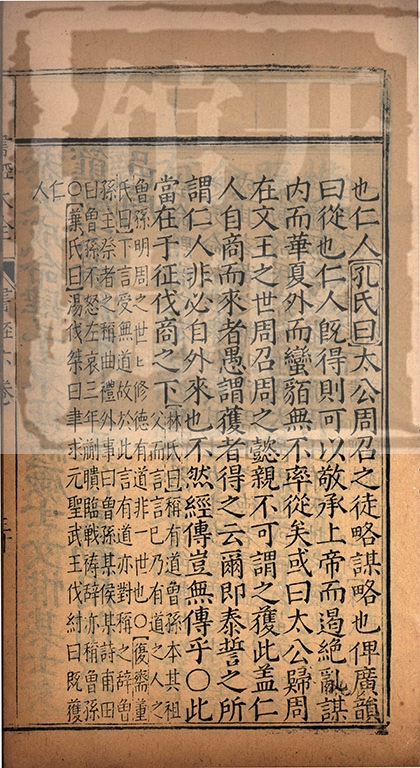 也仁人孔氏曰太公周召之徒略謀略也俾廣韻
曰從也仁人旣得則可以敬承上帝而遏絶亂謀
內而華夏外而蠻貊無不率從矣或曰太公歸周
在文王之世周召周之懿親不可謂之獲此盖仁
人自商而來者愚謂獲者得之云爾即泰誓之所
謂仁人非必自外來也不然經傳豈無傳乎○此
當在于征伐商之下
林氏曰稱有道曾孫本其祖
父而言言已乃有道之人之
曾孫明周之世匕修德有道非一世也○復齋董
氏曰下言受無道故於此言有道亦對稱之辭曾
孫主祭者之稱曲禮外事曰曾孫某侯某詩甫田
曰曾孫不怒左哀三年蒯聵臨戰祷辭亦稱曾孫
○葉氏曰湯伐桀曰聿求元聖武王伐紂曰既獲
仁
人